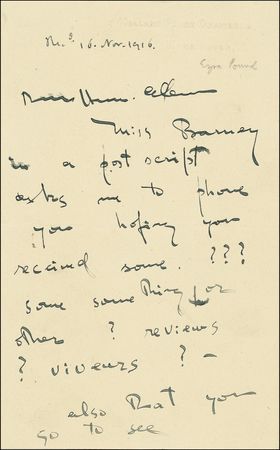 16. Nov. 1916.
Ezra Pound
Miss Barney
in a post script
asks me to phone
you hoping you
received some. ???
some something or
other ? reviews
? viveurs ? –
also that you
go to see